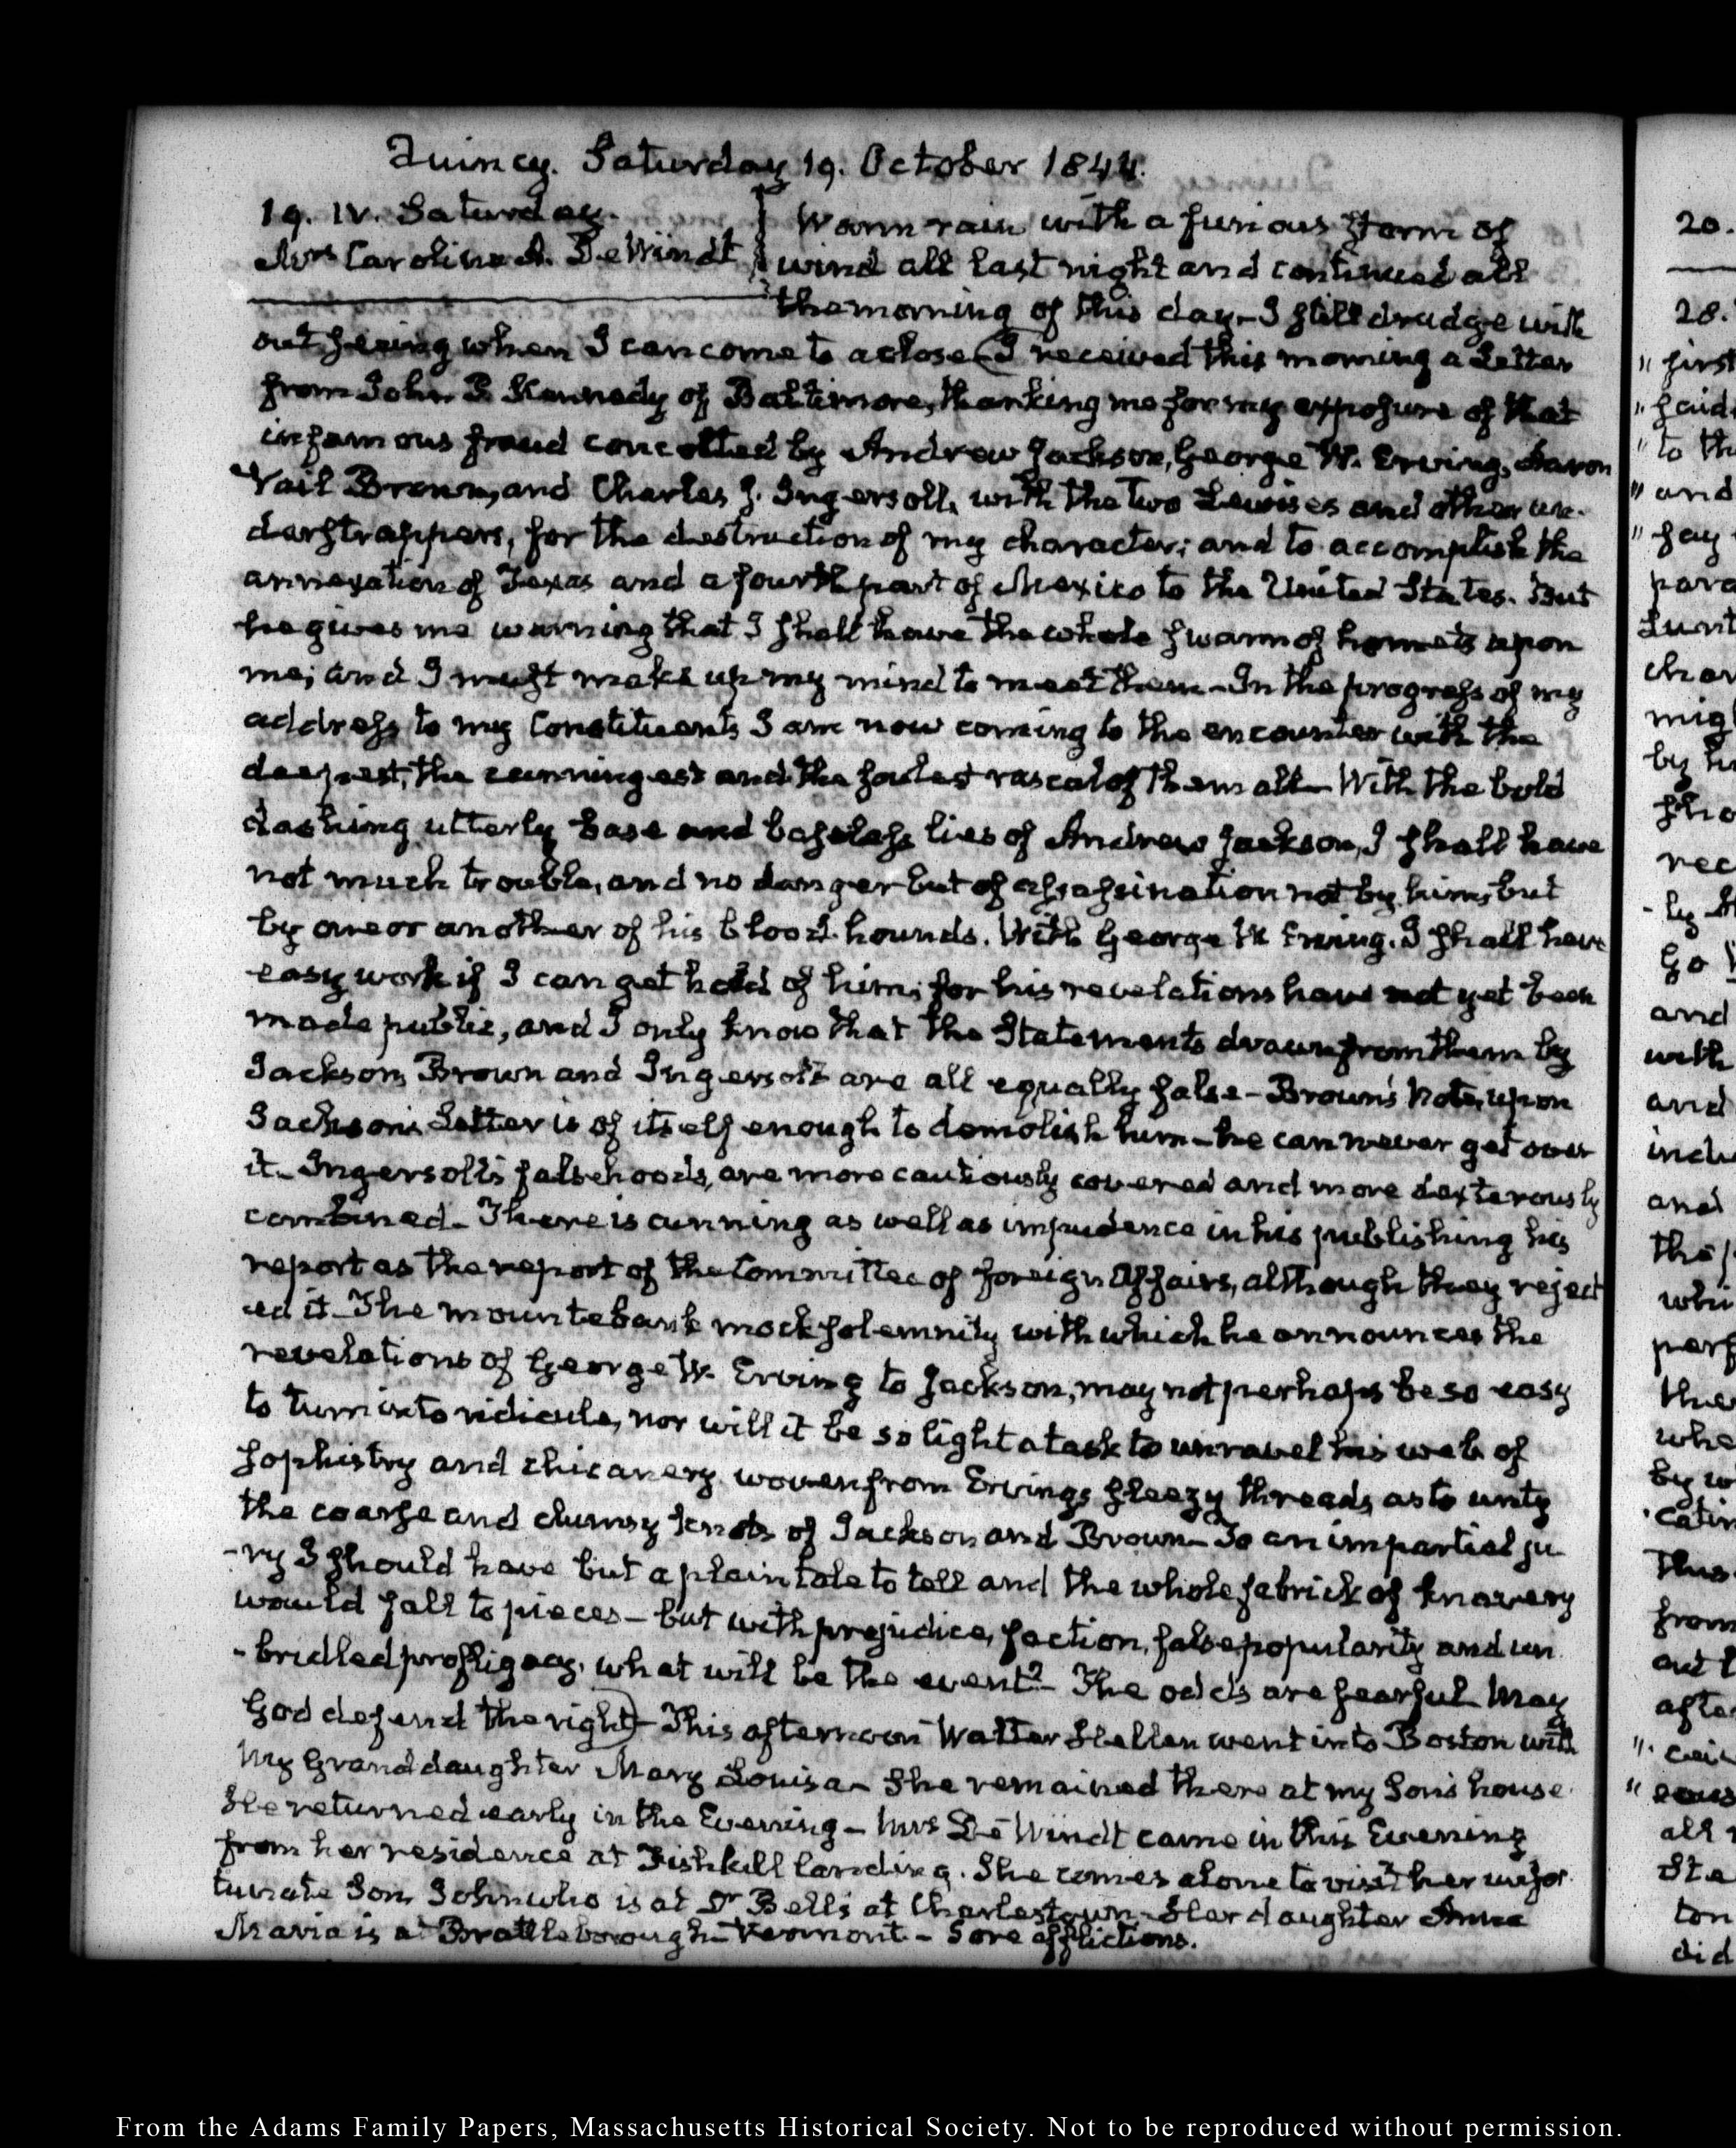 Quincy. Saturday 19. October 1844.
19. IV. Saturday.
Mrs Caroline A. DeWindt
Warm rain with a furious storm of
wind all last night and continued all
the morning of this day– I still drudge with
out seeing when I can come to a close (I received this morning a Letter
from John P. Kennedy of Baltimore, thanking me for my exposure of that
infamous fraud concocted by Andrew Jackson, George W. Erving, Aaron
Vail Brown, and Charles J. Ingersoll, with the two Lewises and other un-
derstrappers, for the destruction of my character; and to accomplish the
annexation of Texas and a fourth part of Mexico to the United States. But
he gives me warning that I shall have the whole swarm of hornets upon
me; and I must make up my mind to meet them– In the progress of my
address to my Constituents I am now coming to the encounter with the
deepest, the cunningest and the foulest rascal of them all– With the bold
dashing utterly base and baseless lies of Andrew Jackson, I shall have
not much trouble, and no danger but of assassination not by him, but
by one or another of his blood-hounds. With George W Erving. I shall have
easy work if I can get hold of him; for his revelations have not yet been
made public, and I only know that the Statements drawn from them by
Jackson, Brown and Ingersoll are all equally false– Brown's Note, upon
Jackson's Letter is of itself enough to demolish him– he can never get over
it– Ingersoll's falsehoods, are more cautiously covered and more dexterously
combined– There is cunning as well as impudence in his publishing his
report as the report of the Committee of foreign Affairs, although they reject
ed it– The mountebank mock solemnity with which he announces the
revelations of George W. Erving to Jackson, may not perhaps be so easy
to turn into ridicule, nor will it be so light a task to unravel his web of
sophistry and chicanery woven from Ervings sleezy threads, as to unty
the coarse and clumsy knots of Jackson and Brown– To an impartial ju
-ry I should have but a plain tale to tell and the whole fabrick of knavery
would fall to pieces– but with prejudice, faction, false popularity and un
-bridled profligacy, what will be the event?– The odds are fearful– May
God defend the right)– This afternoon Walter Hellen went into Boston with
My Granddaughter Mary Louisa– She remained there at my Son's house
He returned early in the Evening– Mrs De Windt came in this Evening
from her residence at Fishkill landing. She comes alone to visit her unfor
tunate Son, John who is at Dr Bell's at Charlestown– Her daughter Anna
Maria is at Brattleborough– Vermont– Sore afflictions.
20.
28.
" first
" said
" to th
" and
" say
para
char
mig
by hi
sho
rec
Go
and
with
and
indi
and
the
whi
perf
the
whe
by w
Thus
from
afte
all
Sta
ton
did
From the Adams Family Papers, Massachusetts Historical Society. Not to be reproduced without permission.